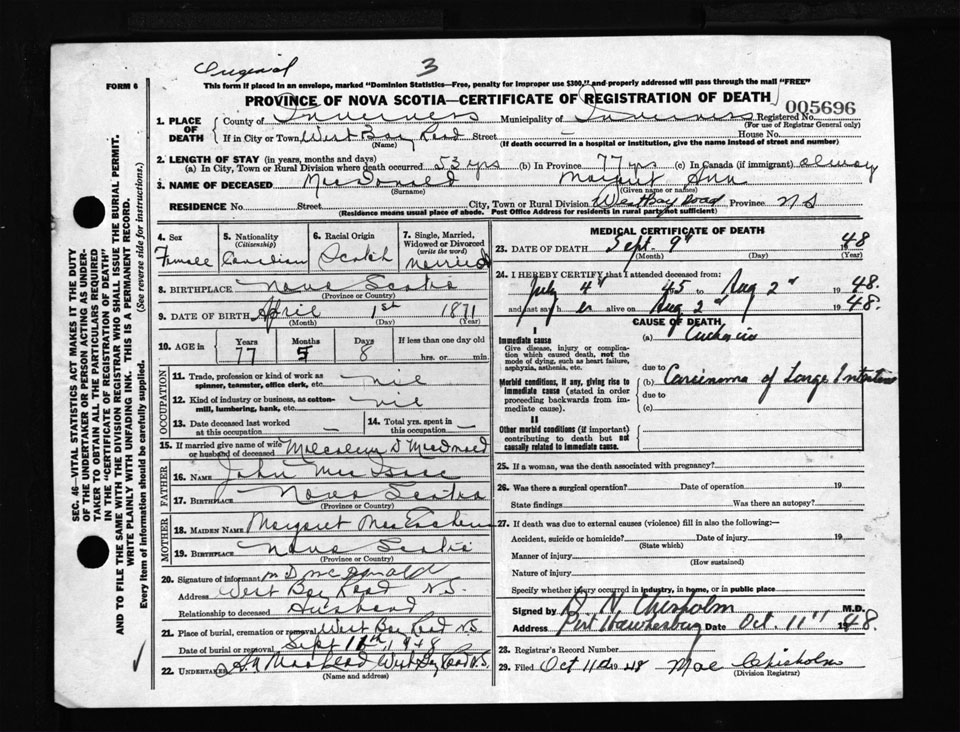 Original 3
FORM 6
This form if placed in an envelope, marked "Dominion Statistics—Free, penalty for improper use $300," and properly addressed will pass through the mail "FREE"
PROVINCE OF NOVA SCOTIA—CERTIFICATE OF REGISTRATION OF DEATH
005696
1. PLACE OF DEATH
County of Inverness Municipality of Inverness Registered No.
(For use of Registrar General only)
If in City or Town West Bay Road Street — House No.
(Name) (If death occurred in a hospital or institution, give the name instead of street and number)
2. LENGTH OF STAY (in years, months and days)
(a) In City, Town or Rural Division where death occurred 53 yrs (b) In Province 77 yrs (c) In Canada (if immigrant) alway
3. NAME OF DECEASED MacDonald Margret Ann
(Surname) (Given name or names)
RESIDENCE No. Street City, Town or Rural Division West Bay Road Province N S
(Residence means usual place of abode. Post Office Address for residents in rural parts not sufficient)
4. Sex Female
5. Nationality (Citizenship) Canadian
6. Racial Origin Scotch
7. Single, Married, Widowed or Divorced (write the word) Married
8. BIRTHPLACE Nova Scotia
(Province or Country)
9. DATE OF BIRTH April 1st 1871
(Month) (Day) (Year)
10. AGE in Years Months Days If less than one day old
77 5 8 hrs. or min.
OCCUPATION
11. Trade, profession or kind of work as spinner, teamster, office clerk, etc. nil
12. Kind of industry or business, as cotton-mill, lumbering, bank, etc. nil
13. Date deceased last worked at this occupation —
14. Total yrs. spent in this occupation —
15. If married give name of wife or husband of deceased Malcolm D MacDonald
FATHER
16. NAME John Mac Isaac
17. BIRTHPLACE Nova Scotia
(Province or Country)
MOTHER
18. MAIDEN NAME Margaret MacEachern
19. BIRTHPLACE Nova Scotia
(Province or Country)
20. Signature of informant M D McDonald
Address West Bay Road N.S.
Relationship to deceased Husband
21. Place of burial, cremation or removal West Bay Road N.S.
Date of burial or removal Sept 11th, 1948
22. UNDERTAKER West Bay Road N.S.
(Name and address)
MEDICAL CERTIFICATE OF DEATH
23. DATE OF DEATH Sept. 9" 1948
(Month) (Day) (Year)
24. I HEREBY CERTIFY that I attended deceased from:
July 4" 45 to Aug 2" 1948.
and last say h er alive on Aug 2" 1948.
CAUSE OF DEATH
I
Immediate cause (a)
Give disease, injury or complication which caused death, not the mode of dying, such as heart failure, asphyxia, asthenia, etc.
due to
Morbid conditions, if any, giving rise to immediate cause (stated in order proceeding backwards from immediate cause).
(b) Carcinoma of Large Intestine
due to
(c)
II
Other morbid conditions (if important) contributing to death but not causally related to immediate cause.
25. If a woman, was the death associated with pregnancy?
26. Was there a surgical operation? Date of operation 19
State findings Was there an autopsy?
27. If death was due to external causes (violence) fill in also the following:—
Accident, suicide or homicide? Date of injury 19
(State which)
Manner of injury
(How sustained)
Nature of injury
Specify whether injury occurred in industry, in home, or in public place
Signed by N. Chisholm M.D.
Address Port Hawkesbury Date Oct. 11" 1948.
28. Registrar's Record No.
29. Filed Oct 1948 Mae Chisholm
(Division Registrar)
SEC. 46—VITAL STATISTICS ACT MAKES IT THE DUTY OF THE UNDERTAKER OR PERSON ACTING AS UNDERTAKER TO OBTAIN ALL THE PARTICULARS REQUIRED IN THE "CERTIFICATE OF REGISTRATION OF DEATH"
AND TO FILE THE SAME WITH THE DIVISION REGISTRAR WHO SHALL ISSUE THE BURIAL PERMIT.
WRITE PLAINLY WITH UNFADING INK. THIS IS A PERMANENT RECORD.
Every item of information should be carefully supplied. (See reverse side for instructions.)